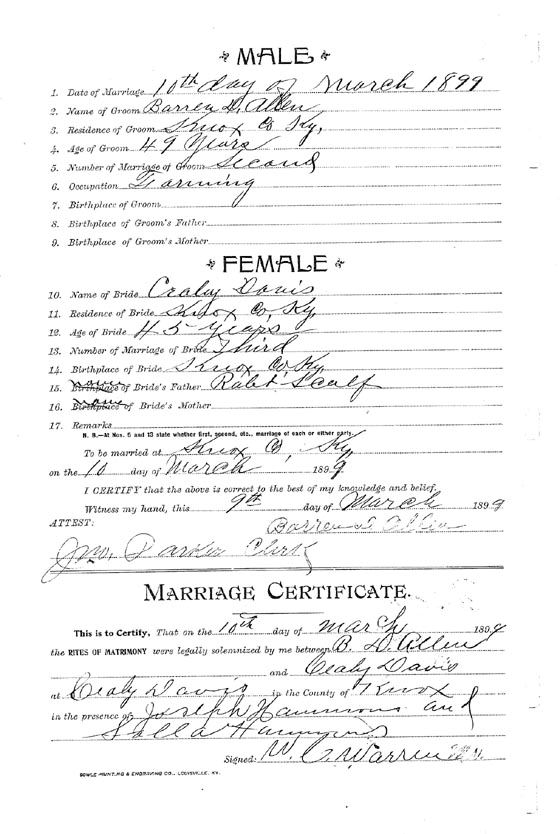 MALE
1. Date of Marriage 10th day of March 1899
2. Name of Groom Barren D. Allen
3. Residence of Groom Knox Co Ky,
4. Age of Groom 49 Years
5. Number of Marriage of Groom Second
6. Occupation Farming
7. Birthplace of Groom
8. Birthplace of Groom's Father
9. Birthplace of Groom's Mother
FEMALE
10. Name of Bride Cealy Davis
11. Residence of Bride Knox Co, Ky,
12. Age of Bride 45 Years
13. Number of Marriage of Bride Third
14. Birthplace of Bride Knox Co, Ky
15. Name of Bride's Father Robt Scalf
16. Name of Bride's Mother
17. Remarks
N. B.—At Nos. 5 and 13 state whether first, second, etc., marriage of each or either party.
To be married at Knox Co, Ky,
on the 10 day of March 1899
I CERTIFY that the above is correct to the best of my knowledge and belief.
Witness my hand, this 9th day of March 1899
Barren D Allen
ATTEST:
Jno. Parker Clerk
MARRIAGE CERTIFICATE.
This is to Certify, That on the 10th day of March 1899
the RITES OF MATRIMONY were legally solemnized by me between B. D. Allen
and Cealy Davis
at Cealy Davis in the County of Knox
in the presence of Joseph Hammons and
Hammons
Signed: W. C. Warren
BOWLE PRINTING & ENGRAVING CO., LOUISVILLE, KY.